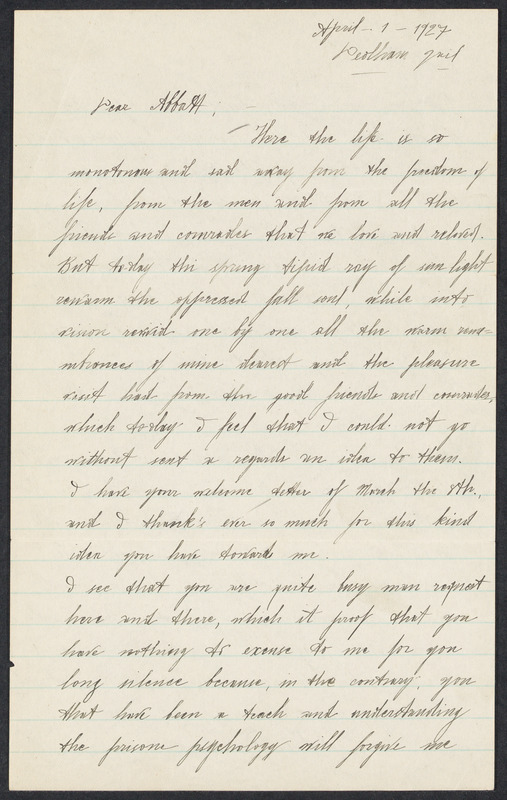 April - 1 - 1927
Dedham Jail
Dear Abbott; -
Here the life is so
monotonous and sad away from the freedom of
life, from the men and from all the
friends and comrades that we love and relived.
But today this spring tipid ray of sun light
rewarm the oppressed soul, while into
vision revivid one by one all the warm rem-
mbrances of mine dearest and the pleasure
visit had from the good friends and comrades,
which today I feel that I could not go
without sent a regards an idea to them.
I have your welcome letter of March the 8th.,
and I thank's ever so much for this kind
idea you have toward me.
I see that you are quite busy man request
here and there, which it proof that you
have nothing to excuse to me for you
long silence because, in the contrary, you
that have been a teach and understanding
the prisone psychology will forgive me